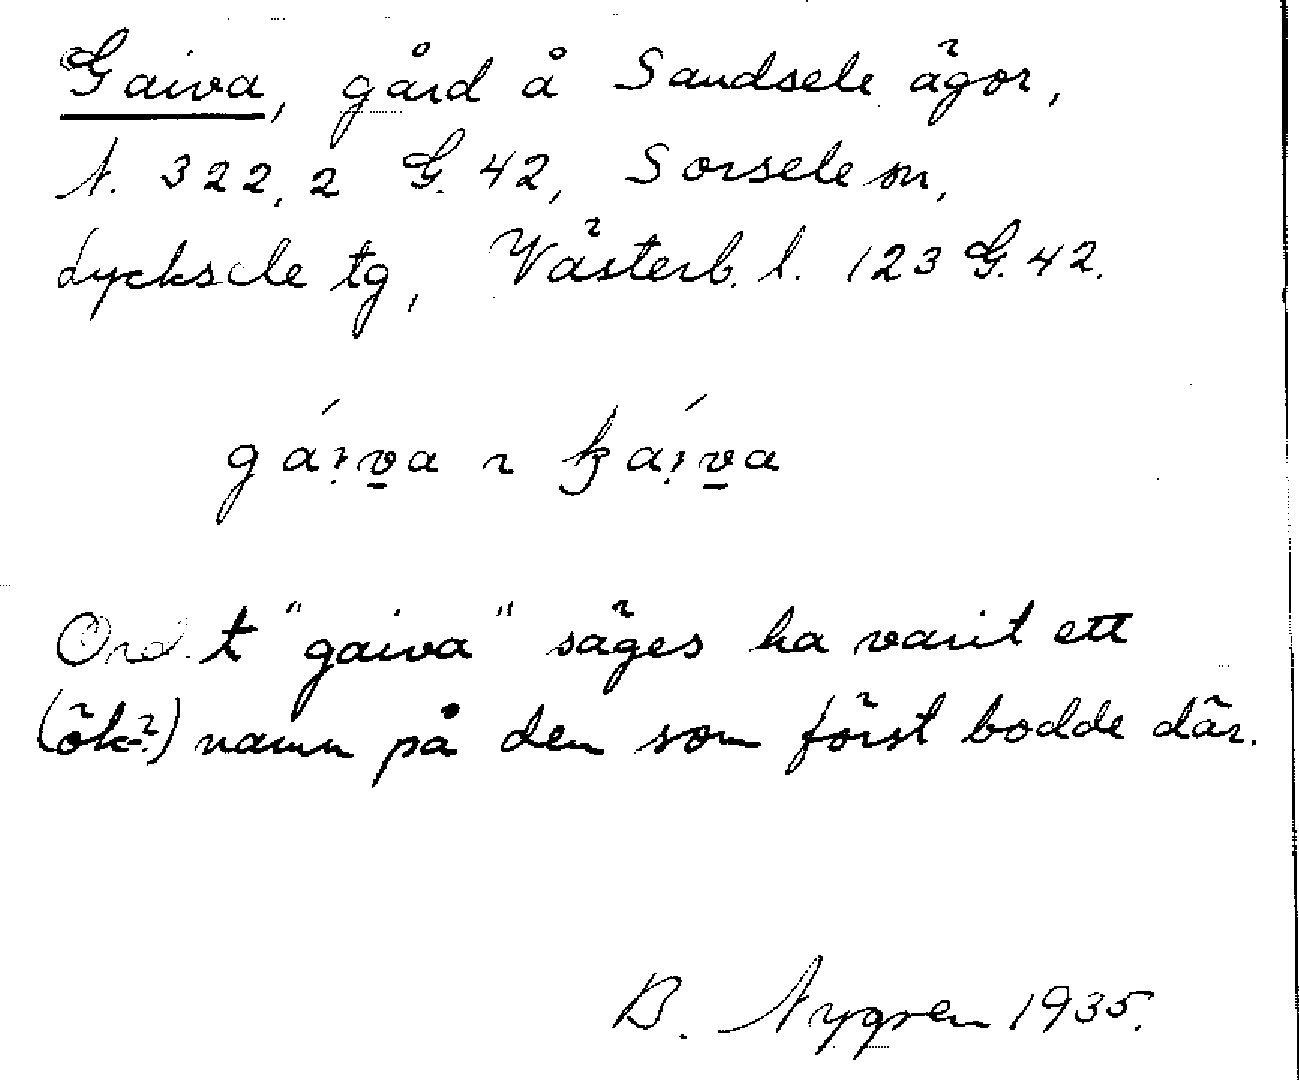 Gaiva, gård å Sandsele ägor,
N. 322,2 G. 42, Sorsele sn,
Lycksele tg, Västerb. l. 123 G. 42.
Ordet "gaiva" säges ha varit ett
(ök-?) namn på den som först bodde där.
B. Nygren 1935.